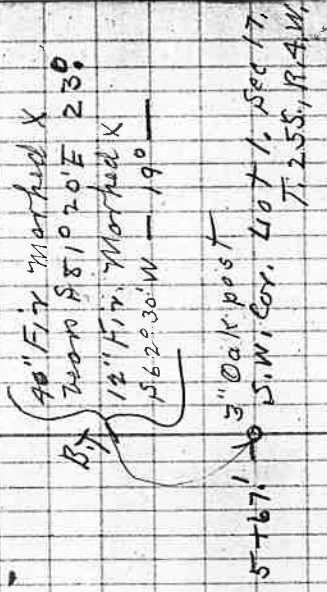 40" Fir Marked X
bears S 81° 20' E 23.0
12" Fir Marked X
S 62° 30' W — 19.0
B.T.
3" Oak post
5+67! S.W. Cor. Lot 1, Sec 17,
T. 25S., R. 4. W.